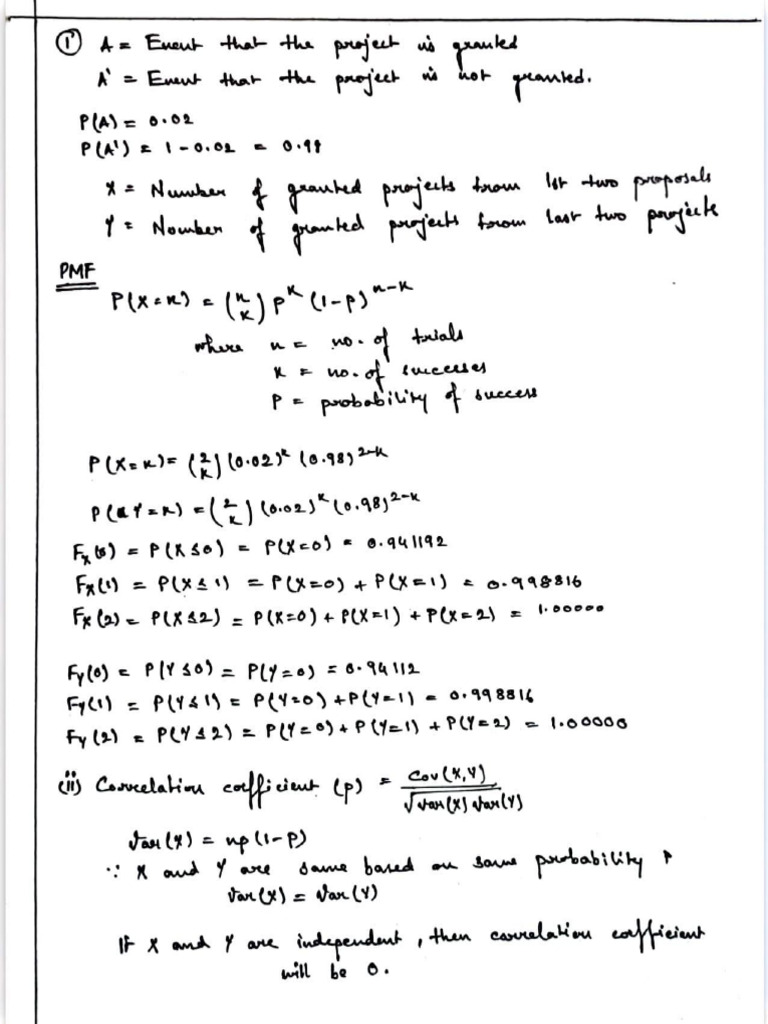 (i) A = Event that the project is granted
A' = Event that the project is not granted.
P(A) = 0.02
P(A') = 1 - 0.02 = 0.98
X = Number of granted projects from 1st two proposals
Y = Number of granted projects from last two projects
PMF
P(X=k) = (n k) p^k (1-p)^n-k
where n = no. of trials
k = no. of successes
P = probability of success
P(X=k) = (2 k) (0.02)^k (0.98)^2-k
P(Y=k) = (2 k) (0.02)^k (0.98)^2-k
Fx(0) = P(X≤0) = P(X=0) = 0.941192
Fx(1) = P(X≤1) = P(X=0) + P(X=1) = 0.998816
Fx(2) = P(X≤2) = P(X=0) + P(X=1) + P(X=2) = 1.00000
Fy(0) = P(Y≤0) = P(Y=0) = 0.94112
Fy(1) = P(Y≤1) = P(Y=0) + P(Y=1) = 0.998816
Fy(2) = P(Y≤2) = P(Y=0) + P(Y=1) + P(Y=2) = 1.00000
(ii) Correlation coefficient (p) = Cov(X,Y) / √var(X) var(Y)
Var(X) = np(1-p)
∵ X and Y are same based on same probability p
Var(X) = Var(Y)
If X and Y are independent, then correlation coefficient
will be 0.